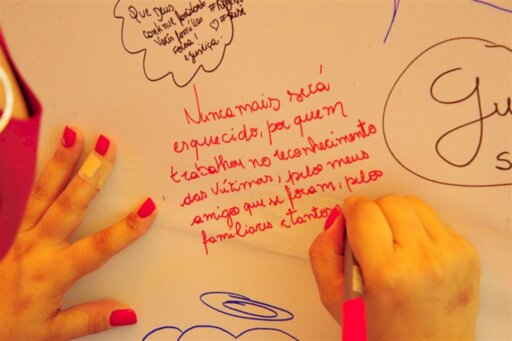 Que Deus
continue
vocês famílias
Força!
e justiça.
Nunca mais será
esquecido, por quem
trabalhou no reconhecimento
das vítimas, pelos meus
amigos que se foram, pelos
familiares e tantos
Gu
s